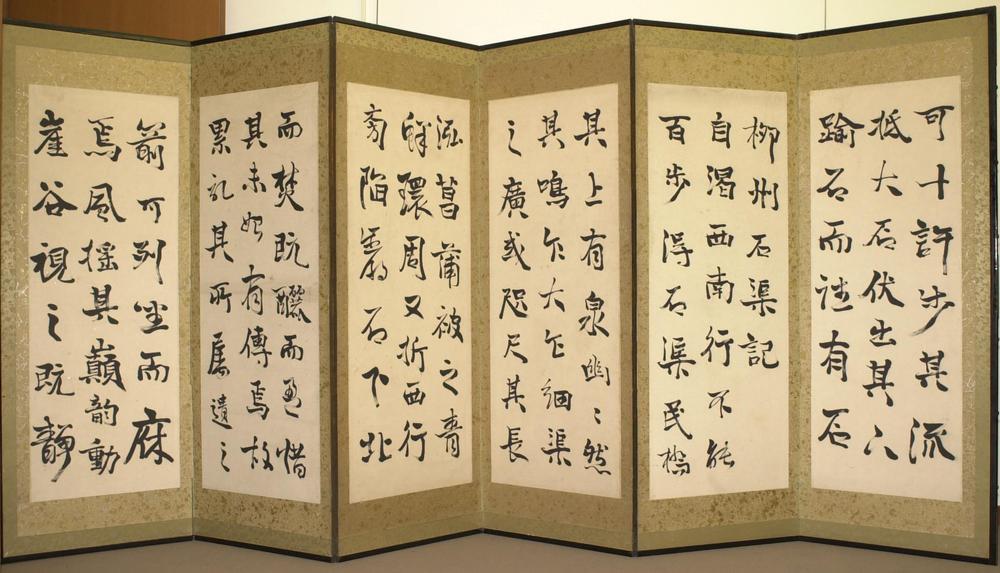 可十許步其流
抵大石伏出其下
踰石而往有石
柳州石渠記
自渴西南行不能
百步得石渠民橋
其上有泉幽々然
其鳴乍大乍細渠
之廣或咫尺其長
泓菖蒲被之青
鮮環周又折西行
旁陷巖石下北
而焚既釃而盈惜
其未始有傳焉故
累記其所屬遺之
箭可列坐而庥
焉風搖其巔韻動
崖谷視之既靜